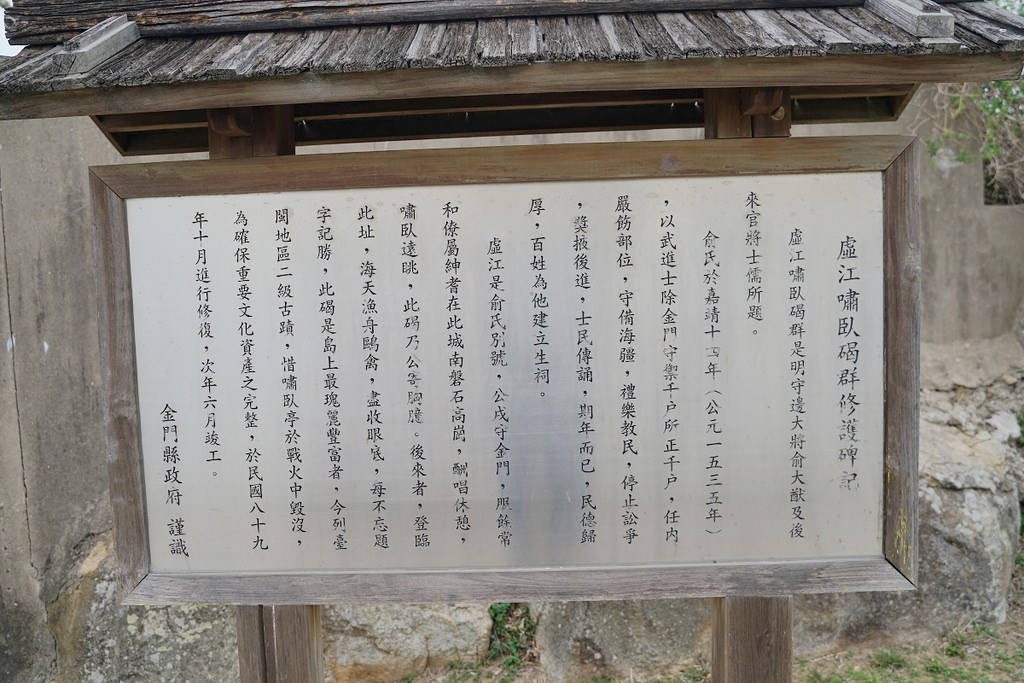 虛江嘯臥碣群修護碑記
虛江嘯臥碣群是明守邊大將俞大猷及後
來官將士儒所題。
俞氏於嘉靖十四年（公元一五三五年）
，以武進士除金門守禦千户所正千户，任內
嚴飭部位，守備海疆，禮樂教民，停止訟爭
，獎掖後進，士民傳誦，期年而已，民德歸
厚，百姓為他建立生祠。
虛江是俞氏別號，公戍守金門，照餘常
和僚屬紳耆在此城南磐石高崗，酬唱休憩，
嘯臥遠眺，此碣乃公寄胸臆。後來者，登臨
此址，海天漁舟鷗禽，盡收眼底，每不忘題
字記勝，此碣是島上最瑰麗豐富者，今列臺
閩地區二級古蹟，惜嘯臥亭於戰火中毀沒，
為確保重要文化資產之完整，於民國八十九
年十月進行修復，次年六月竣工。
金門縣政府 謹識